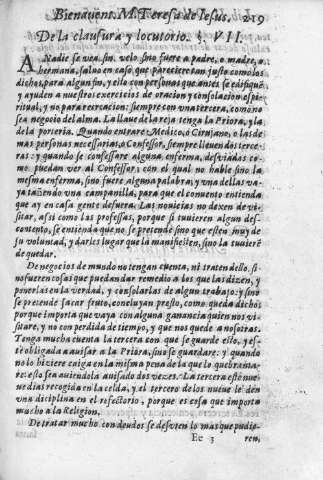 Bienauent. M. Teresa de Iesus. 219
De la clausura y locutorio. §. VII.
A Nadie se vea sin velo sino fuere a padre, o madre, o
hermana, saluo en caso que pareciere tan justo como los
dichos, para algun fin, y esto con personas que antes se edifiquē
y ayuden a nuestros exercicios de oracion y consolacion espiri-
tual, y no para recreacion: siempre con vna tercera, como no
sea negocio del alma. La llaue de la reja tenga la Priora, y la
de la porteria. Quando entrare Medico, o Cirujano, o las de
mas personas necessarias, o Confessor, siempre lleuen dos terce-
ras: y quando se confessare alguna enferma, desviadas co-
mo puedan ver al Confessor: con el qual no hable sino la
mesma enferma, sino fuere alguna palabra, y vna dellas va-
ya tañendo vna campanilla, para que el conuento entienda
que ay en casa gente defuera. Las nouicias no dexen de vi-
sitar, assi como las professas, porque si tuuieren algun des-
contento, se entienda que no se pretende sino que esten muy de
su voluntad, y darles lugar que la manifiesten, sino la tuuierē
de quedar.
De negocios de mundo no tengan cuenta, ni traten dello, si-
no fueren cosas que puedan dar remedio a los que las dizen, y
ponerlas en la verdad, y consolarlas de algun trabajo: y sino
se pretende sacar fruto, concluyan presto, como queda dicho:
porque importa que vaya con alguna ganancia quien nos vi-
sitare, y no con perdida de tiempo, y que nos quede a nosotras.
Tenga mucha cuenta la tercera con que se guarde esto, y es-
te obligada a auisar a la Priora, sino se guardare: y quando
no lo hiziere caiga en la misma pena de la que lo quebranta-
re: esto sea auiendola auisado dos vezes. La tercera estè nue-
ue dias recogida en la celda, y el tercero de los nueue le dēn
vna diciplina en el refectorio, porque es cosa que importa
mucho a la Religion.
De tratar mucho con deudos se desvien lo mas que pudie-
Ee 3 ren,